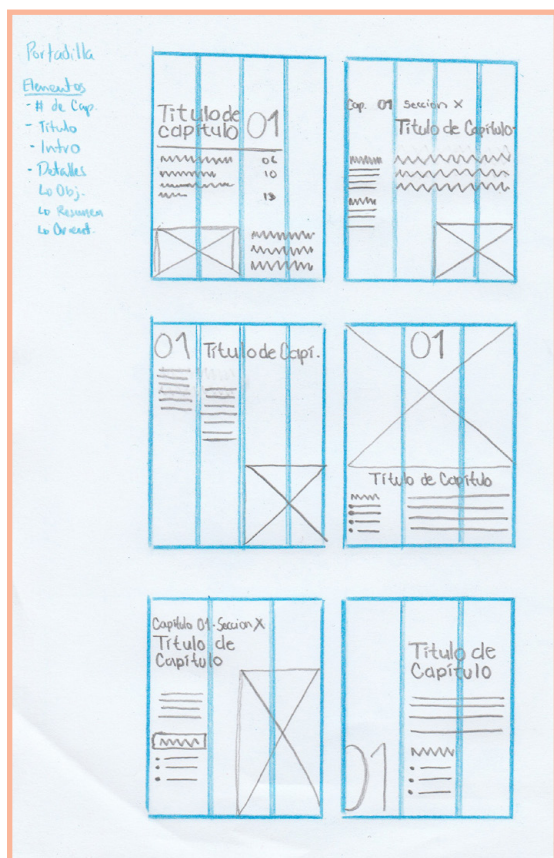 Portadilla
Elementos
- # de Cap.
- Título
- Intro
- Detalles
↳ Obj.
↳ Resumen
Titulo de
capitulo 01
06
10
18
Cap. 01 Seccion X
Título de Capítulo
01 Título de Capi.
01
Título de Capítulo
Capítulo 01 - Seccion X
Título de
Capítulo
Título de
Capítulo
01